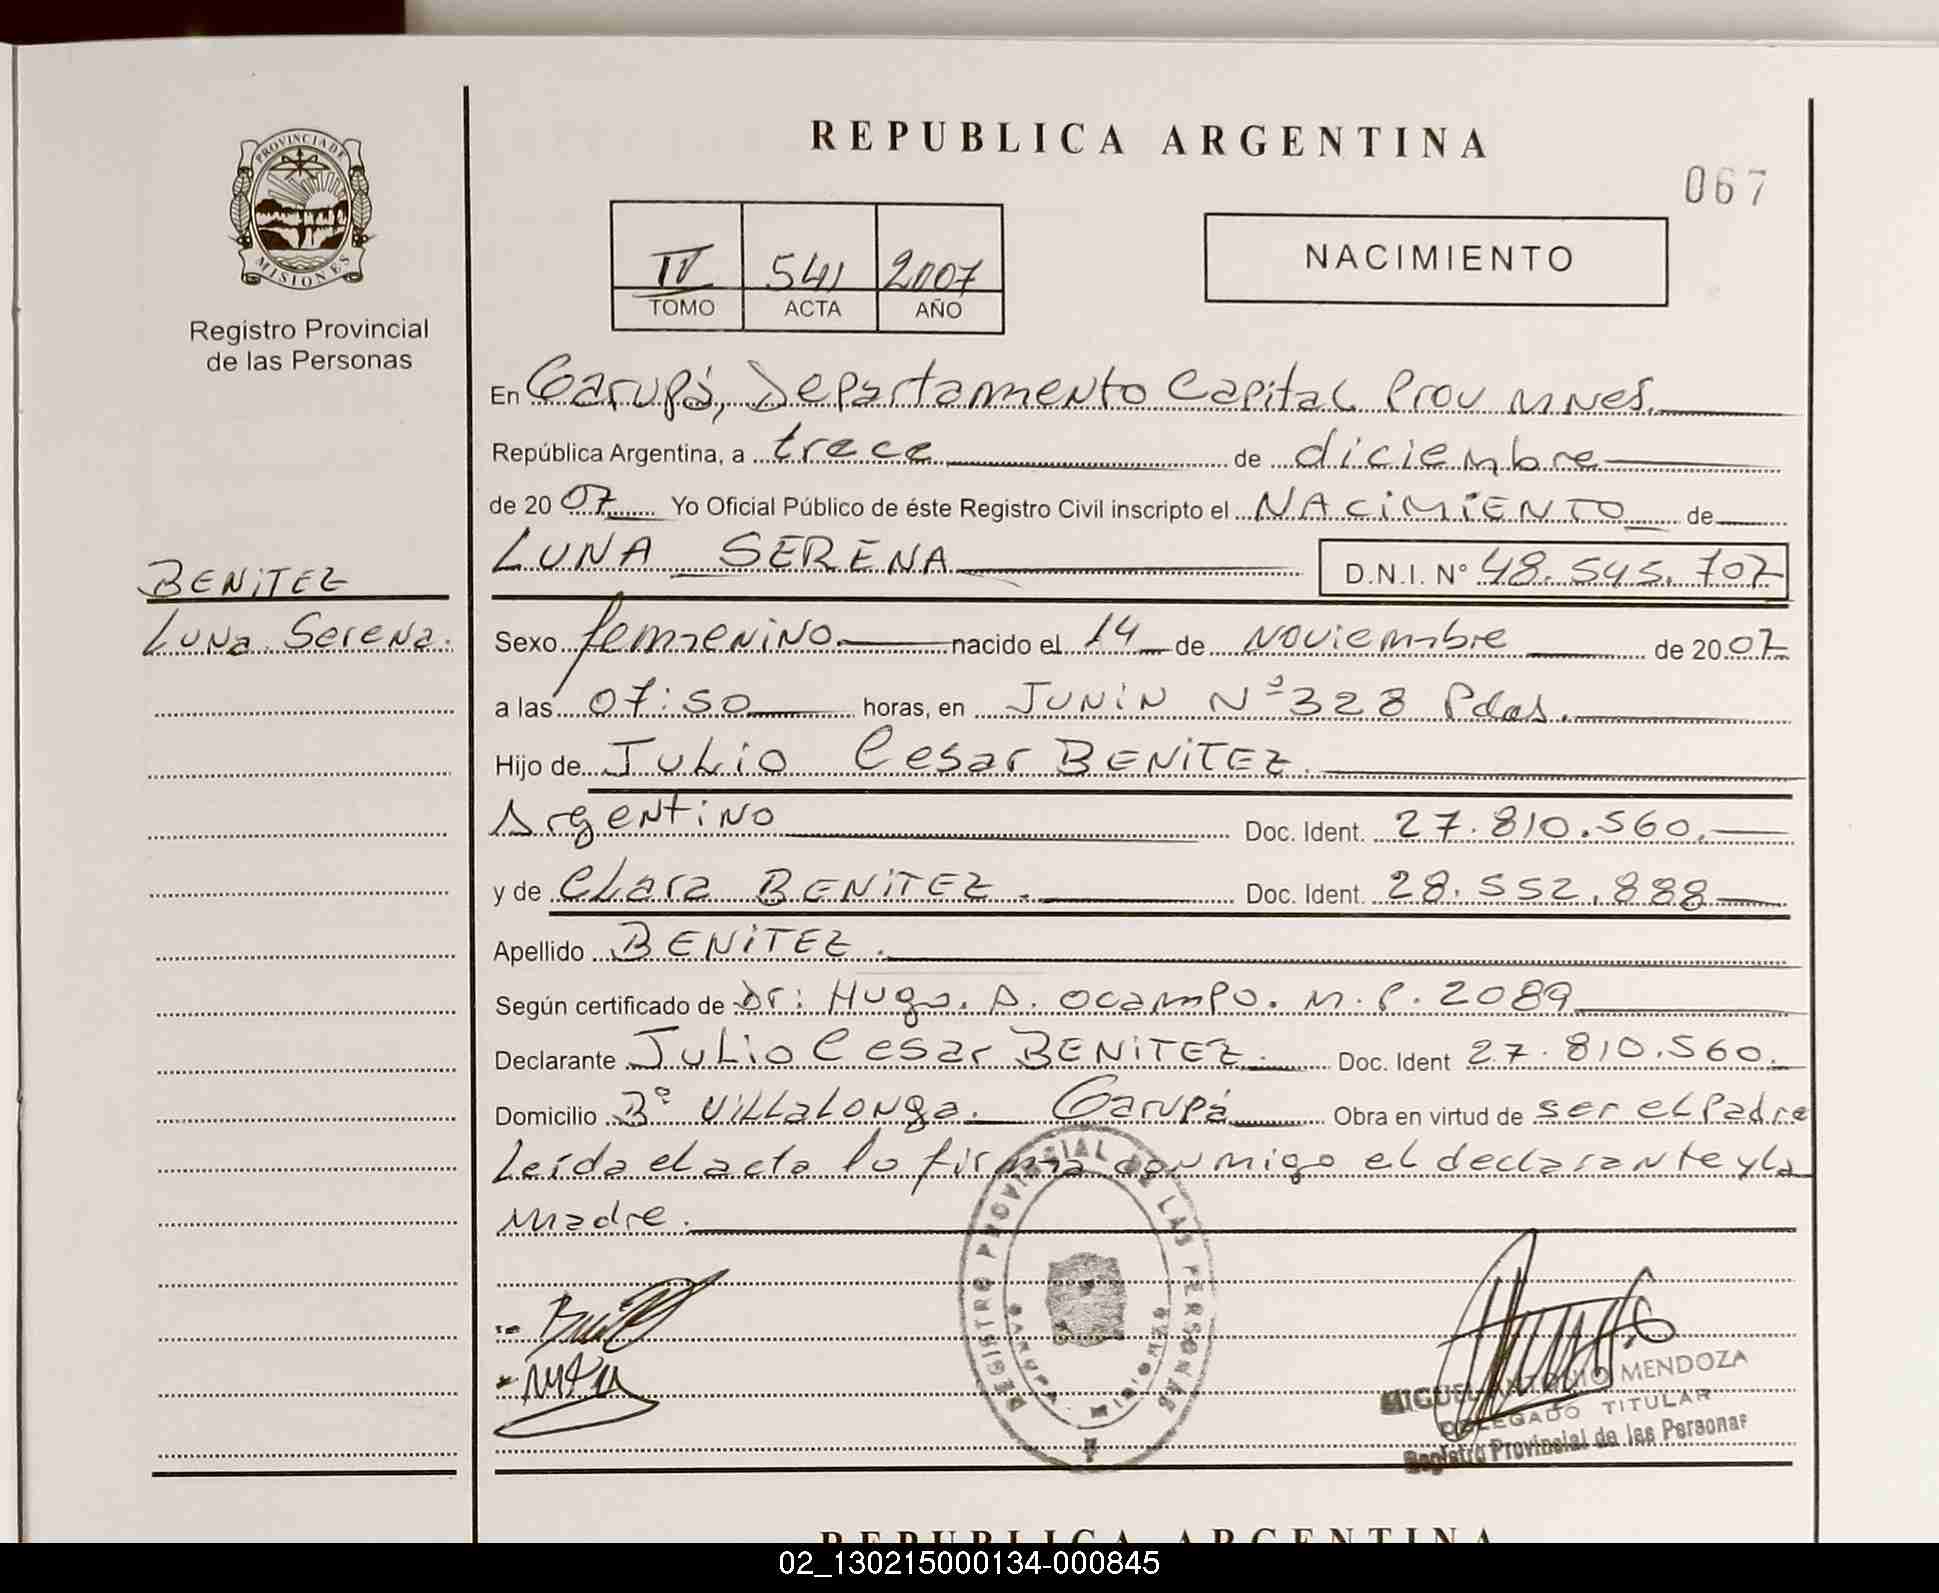 REPUBLICA ARGENTINA
067
PROVINCIA DE
MISIONES
Registro Provincial
de las Personas
IV 541 2007
TOMO ACTA AÑO
NACIMIENTO
En Garupá, Departamento Capital Prov Mnes.
República Argentina, a trece de diciembre
de 2007 Yo Oficial Público de éste Registro Civil inscripto el NACIMIENTO de
LUNA SERENA D.N.I. N° 48.545.707
BENITEZ
Luna Serena.
Sexo femenino. nacido el 14 de Noviembre de 2007
a las 07:50 horas, en JUNIN Nº 328 Pdas.
Hijo de JULIO Cesar BENITEZ.
Argentino Doc. Ident. 27.810.560.
y de Clara BENITEZ. Doc. Ident. 28.552.888
Apellido BENITEZ.
Según certificado de Dr: Hugo. A. Ocampo. M.P. 2089
Declarante Julio Cesar BENITEZ. Doc. Ident 27.810.560.
Domicilio Bº Villalonga. Garupá Obra en virtud de ser el Padre
Leída el acta la firma conmigo el declarante y la
Madre.
REGISTRO PROVINCIAL DE LAS PERSONAS
GARUPA MISIONES
MIGUEL ANTONIO MENDOZA
DELEGADO TITULAR
Registro Provincial de las Personas
REPUBLICA ARGENTINA
02_130215000134-000845